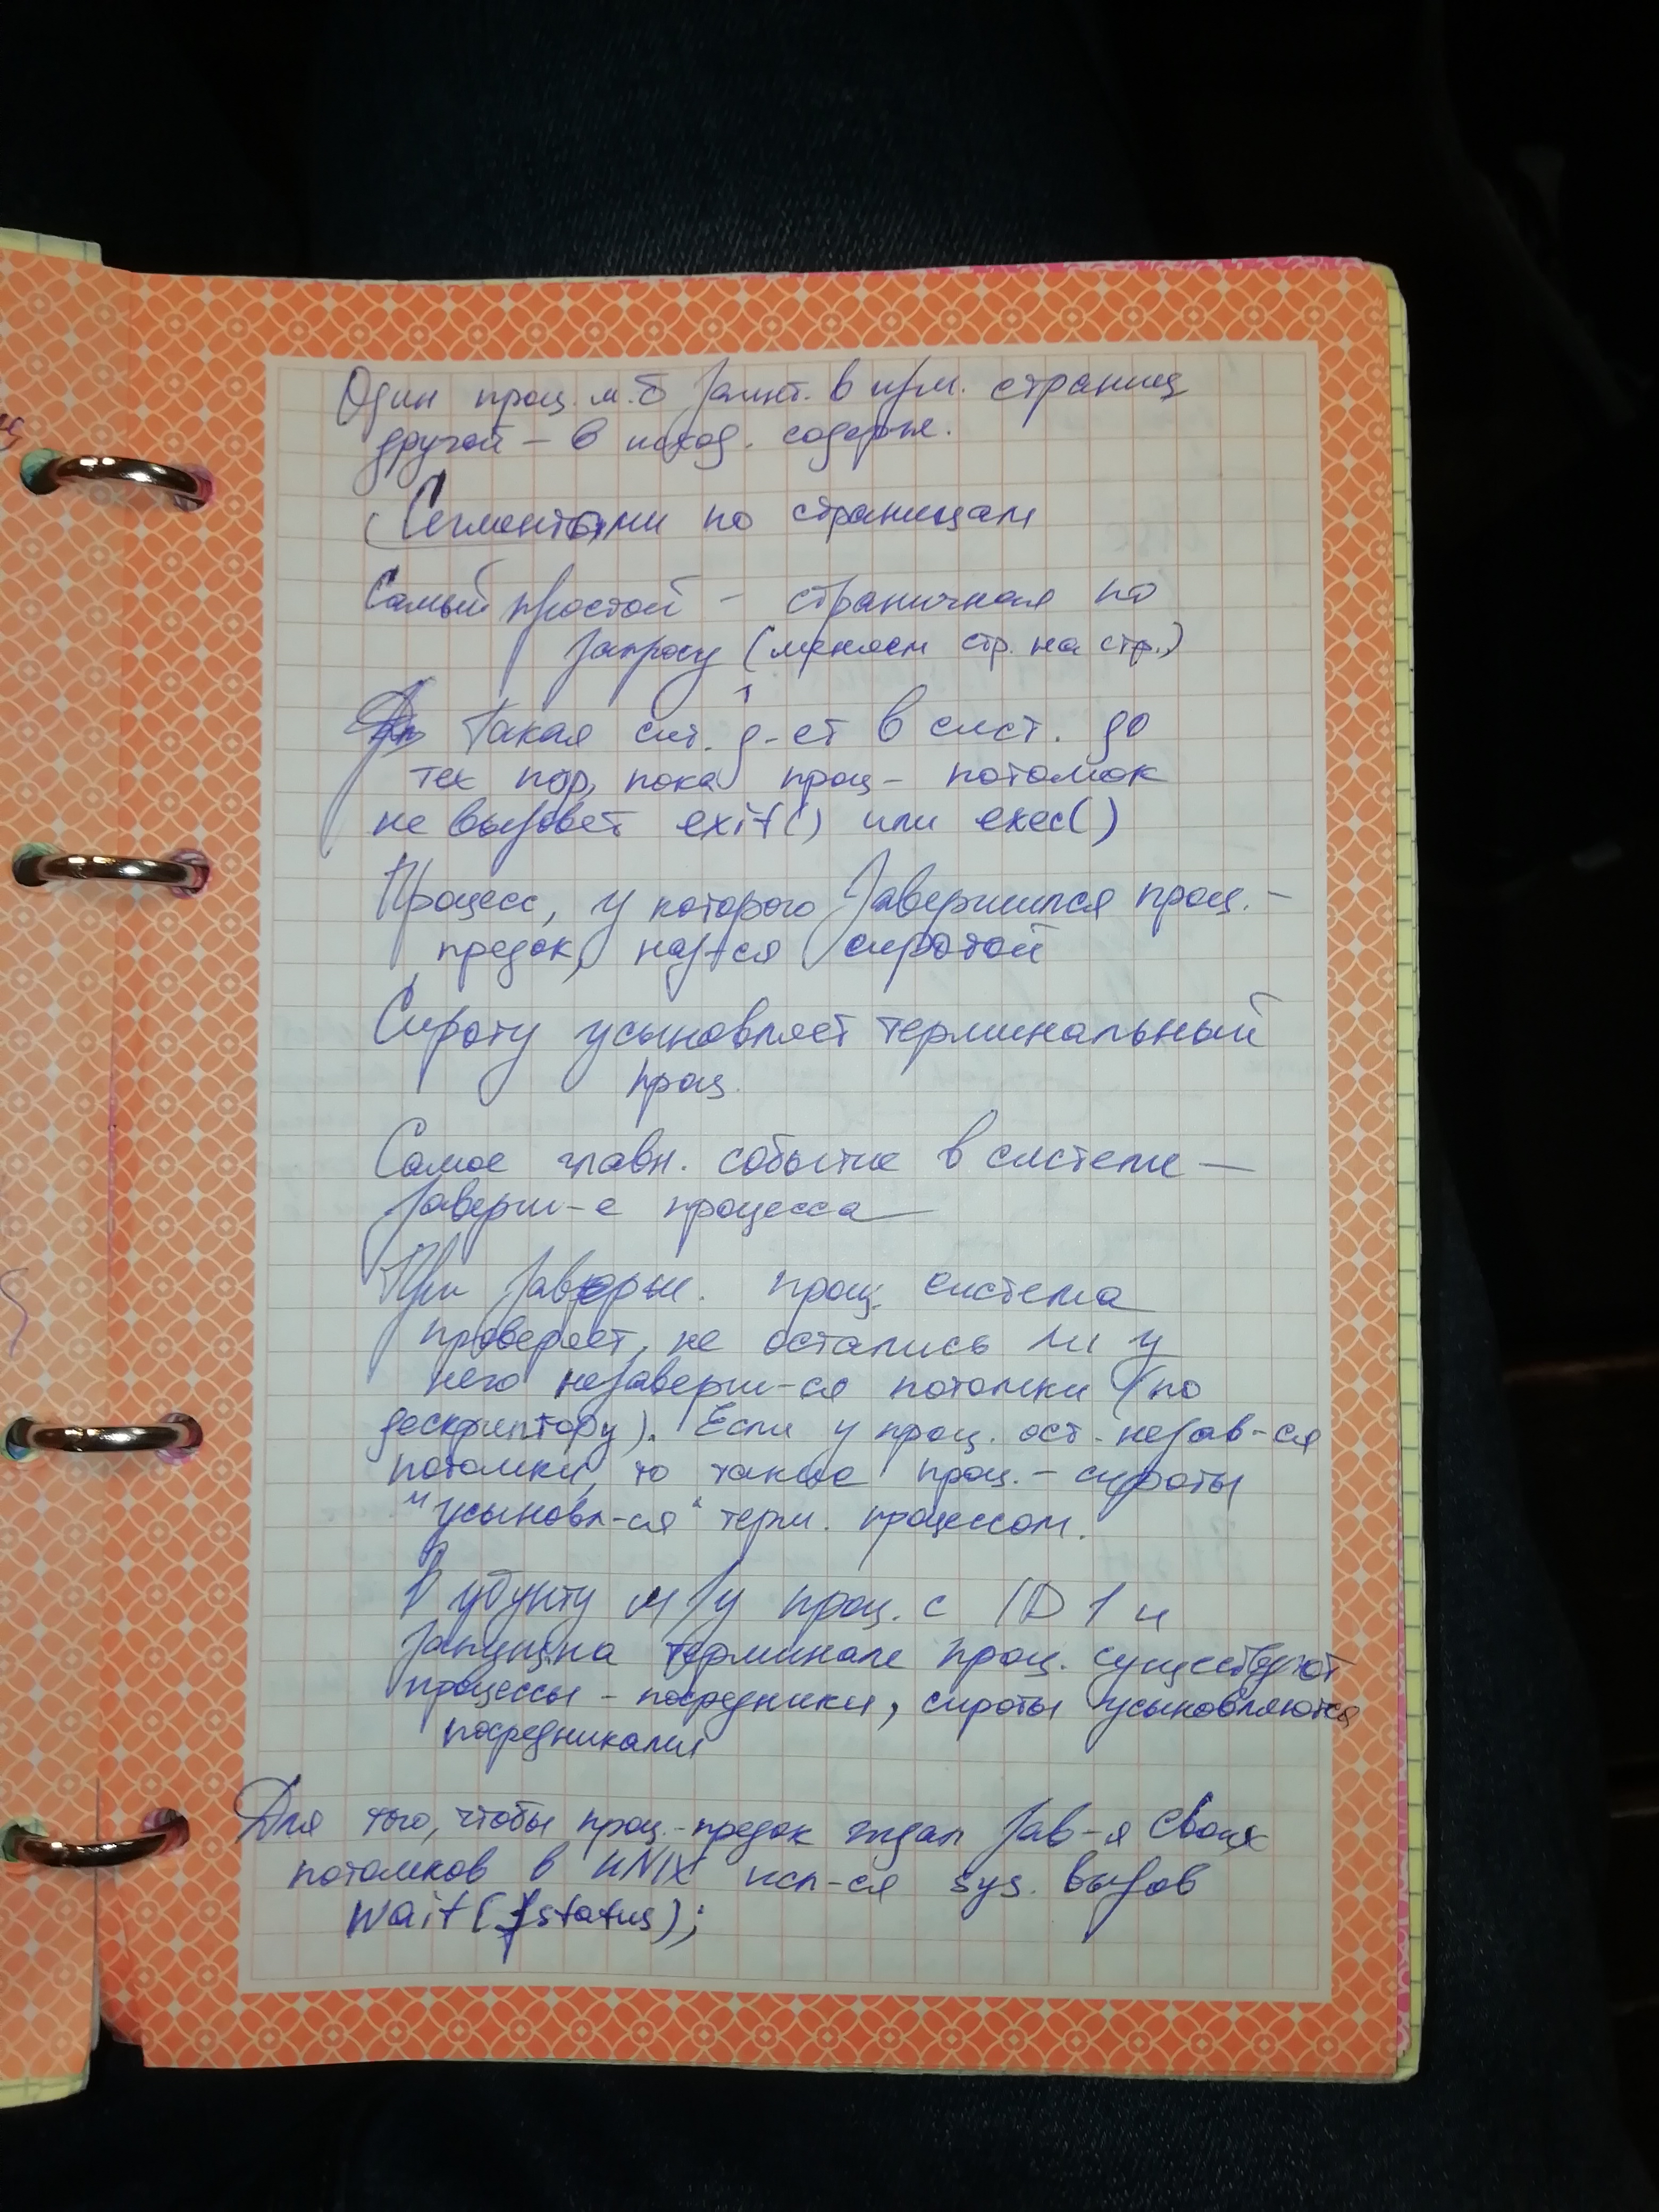 Один проц. м.б заинт. в изм. страниц
другой – в исход. содерж.
Сегментами по страницам
Самый простой – страничная по
запросу (меняем стр. на стр.)
Такая сит. д-ет в сист. до
тех пор, пока проц – потомок
не вызовет exit() или exec()
Процесс, у которого завершился проц. –
предок, наз-ся сиротой
Сироту усыновляет терминальный
проц.
Самое главн. событие в системе —
заверш-е процесса
При заверш. проц. система
проверяет, не остались ли у
него незаверш-ся потомки (по
дескриптору). Если у проц. ост. незав-ся
потомки, то такие проц. – сироты
"усыновл-ся" терм. процессом.
В убунту м/у проц. с ID 1 и
запущ. на терминале проц. существуют
процессы – посредники, сироты усыновляются
посредниками
Для того, чтобы проц.-предок ждал зав-я своих
потомков в UNIX исп-ся sys. вызов
wait(&status);